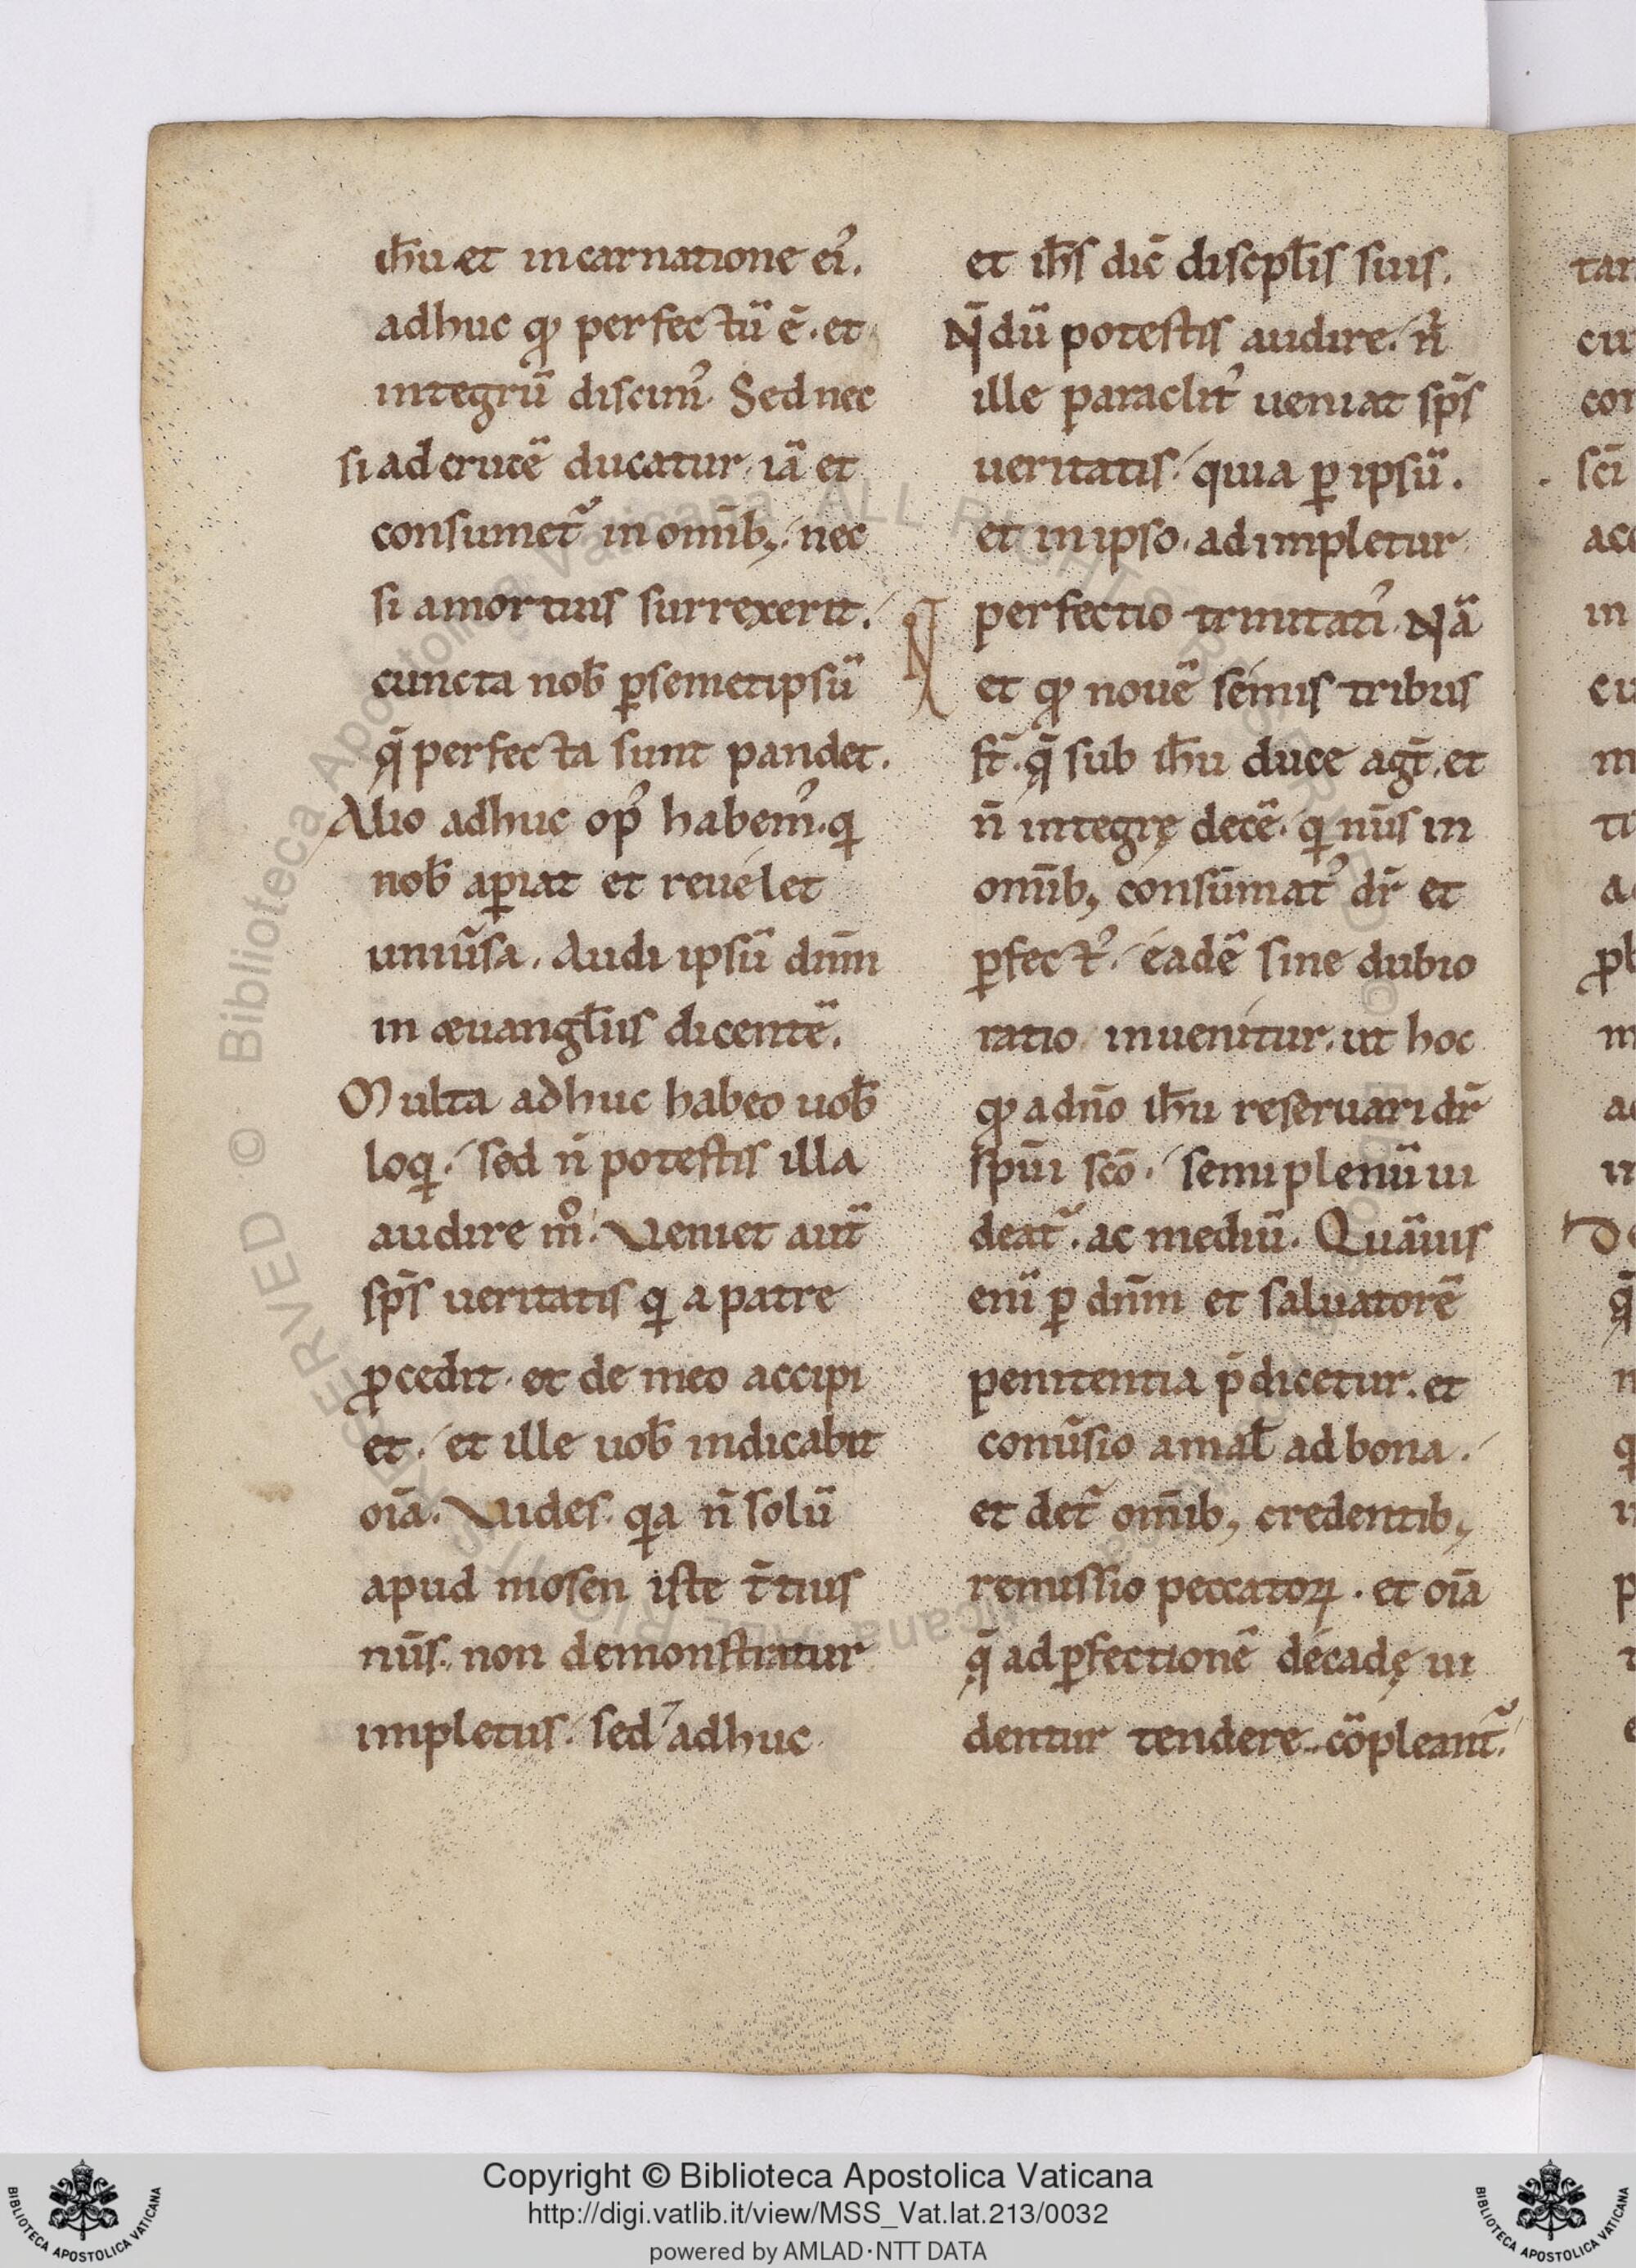 ih̅u et incarnatione ei᾽.
adhuc qꝫ perfectū ē. et
integrū discim᾽. Sed nec
si ad crucē ducatur. iā et
consumet᷑ in omīb; nec
si a mortuis surrexerit.
cuncta nob̅ ꝑsemetipsū
q̄ perfecta sunt pandet.
Alio adhuc op᾽ habem᾽. qi
nob̅ aꝑiat et reuélet
uniūsa. Audi ipsū dn̅m
in æuangl̅iis dicentē.
Multa adhuc habeo uob̅
loqi. sed n̄ potestis illa
audire m̊. Veniet aut̄
sp̅s ueritatis qi a patre
ꝓcedit. et de meo accipi
et. et ille uob̅ indicabit
oīa. Vides. qia n̄ solū
apud mosen iste t̄tius
nūs. non demonstratur
impletus. sed ⁊ adhuc
et ih̅s dic̄ discpl̅is suis.
N̄dū potestis audire. n̓
ille paraclit᾽ ueniat sp̅s
ueritatis. quia ꝑ ipsū.
et in ipso. adimpletur
perfectio trinitati᾽. Nā
et qꝫ nouē sémis tribus
fit̄. q̄ sub ih̅u duce agt̄. et
n̄ integrę decē. qi nūs in
omīb; consūmat᾽ dr̄ et
ꝑfect᾽. éadē sine dubio
ratio inuenitur. ut hoc
qꝫ a dn̅o ih̅u reseruari dr̄
sp̅ui sc̅o. semiplenū ui
deat᷑. ac mediū. Quāuis
eni̅ ꝑ dn̅m et saluatorē
penitentia p̄dicetur. et
conūsio a mal̅ ad bona.
et det᷑ omīb; credentib;
remissio peccatoꝝ. et oīa
q̄ ad ꝑfectionē décadę ui
dentur tendere. cōpleant᷑.
N
Copyright © Biblioteca Apostolica Vaticana
http://digi.vatlib.it/view/MSS_Vat.lat.213/0032
powered by AMLAD·NTT DATA
BIBLIOTECA APOSTOLICA VATICANA
BIBLIOTECA APOSTOLICA VATICANA